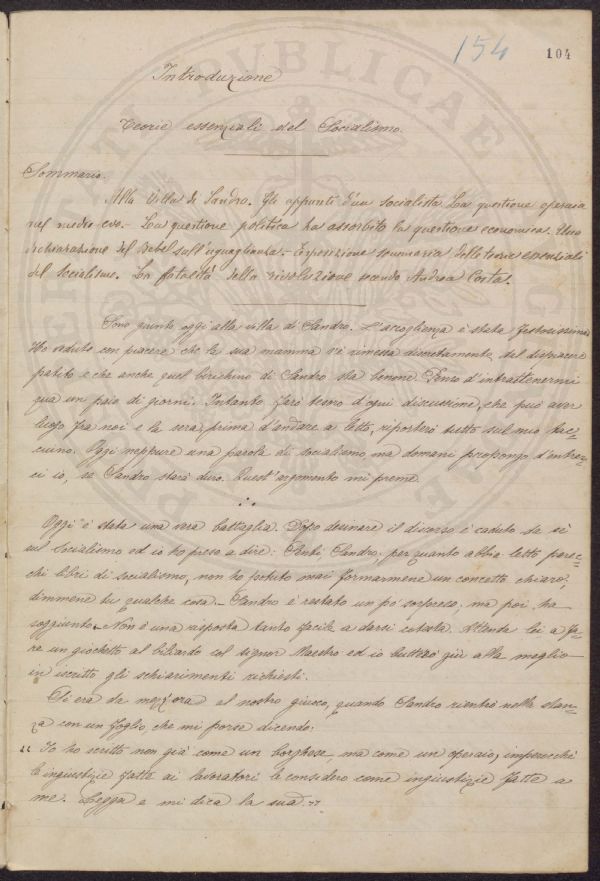 154
104
Introduzione
Teorie essenziali del Socialismo.
Sommario.
Alla Villa di Sandro. Gli appunti d'un socialista. La questione operaia
nel medio evo. - La questione politica ha assorbito la questione economica. Una
dichiarazione del Bebel sull'uguaglianza. - Esposizione sommaria delle teorie essenziali
del socialismo. La fatalità della rivoluzione secondo Andrea Costa.
Sono giunto oggi alla villa di Sandro. L'accoglienza è stata festosissima.
Ho veduto con piacere che la sua mamma s'è rimessa discretamente, del dispiacere
patito e che anche quel birichino di Sandro sta benone. Penso d'intrattenermi
qua un paio di giorni. Intanto farò tesoro d'ogni discussione, che può aver
luogo fra noi e la sera, prima d'andare a letto, riporterò tutto sul mio tac=
cuino. Oggi neppure una parola di socialismo, ma domani propongo d'entrar=
ci io, se Sandro starà duro. Quest'argomento mi preme.
Oggi è stata una vera battaglia. Dopo desinare il discorso è caduto da sè
sul Socialismo ed io ho preso a dire: Senti Sandro, per quanto abbia letto parec=
chi libri di socialismo, non ho potuto mai formarmene un concetto chiaro,
dimmene tu qualche cosa. - Sandro è restato un po' sorpreso, ma poi ha
soggiunto. Non è una risposta tanto facile a darsi cotesta. Attenda lei a fa=
re un giochetto al biliardo col signor Maestro ed io butterò giù alla meglio
in iscritto gli schiarimenti richiesti.
Si era da mezz'ora al nostro giuoco, quando Sandro rientrò nella stan=
za con un foglio, che mi porse dicendo:
" Io ho scritto non già come un borghese, ma come un operaio, imperocchè
le ingiustizie fatte ai lavoratori le considero come ingiustizie fatte a
me. Legga e mi dica la sua "